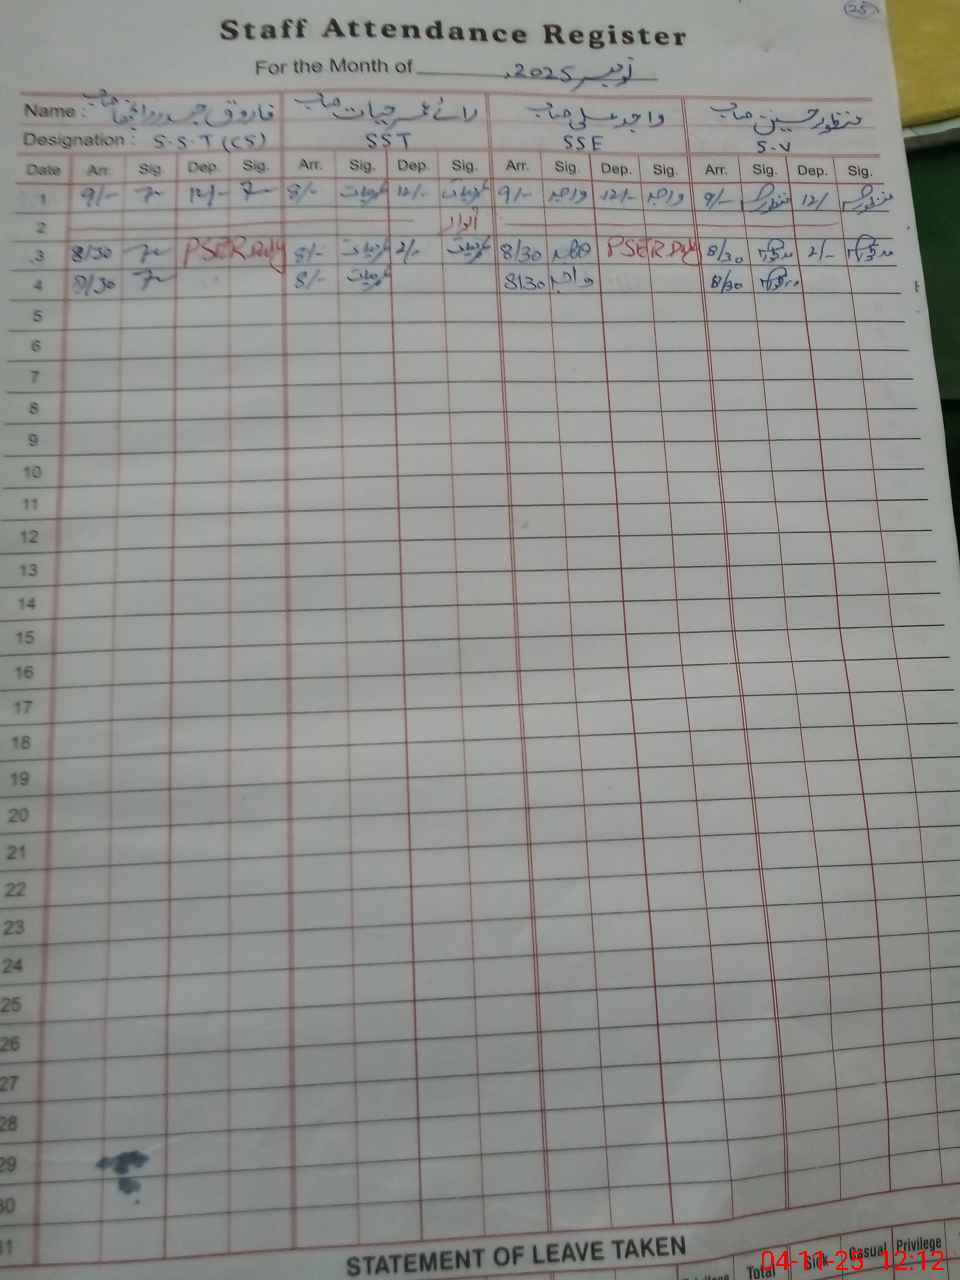 25
Staff Attendance Register
For the Month of نومبر 2025
Name : فاروق حیدر صاحب رائے عمر حیات صاحب واجد علی صاحب منظور حسین صاحب
Designation : S.S.T (CS) SST SSE S.V
Date Arr. Sig. Dep. Sig. Arr. Sig. Dep. Sig. Arr. Sig. Dep. Sig. Arr. Sig. Dep. Sig.
1 9/- 12/- 8/- عمرحیات 12/- عمرحیات 9/- واجد 12/- واجد 9/- منظور 12/ منظور
2 اتوار
3 8/30 PSER Duty 8/- عمرحیات 2/- عمرحیات 8/30 واجد PSER Duty 8/30 2/-
4 8/30 8/- عمرحیات 8/30 واجد 8/30
5
6
7
8
9
10
11
12
13
14
15
16
17
18
19
20
21
22
23
24
25
26
27
28
29
30
31
STATEMENT OF LEAVE TAKEN
Total Sick Casual Privilege
04-11-25 12:12